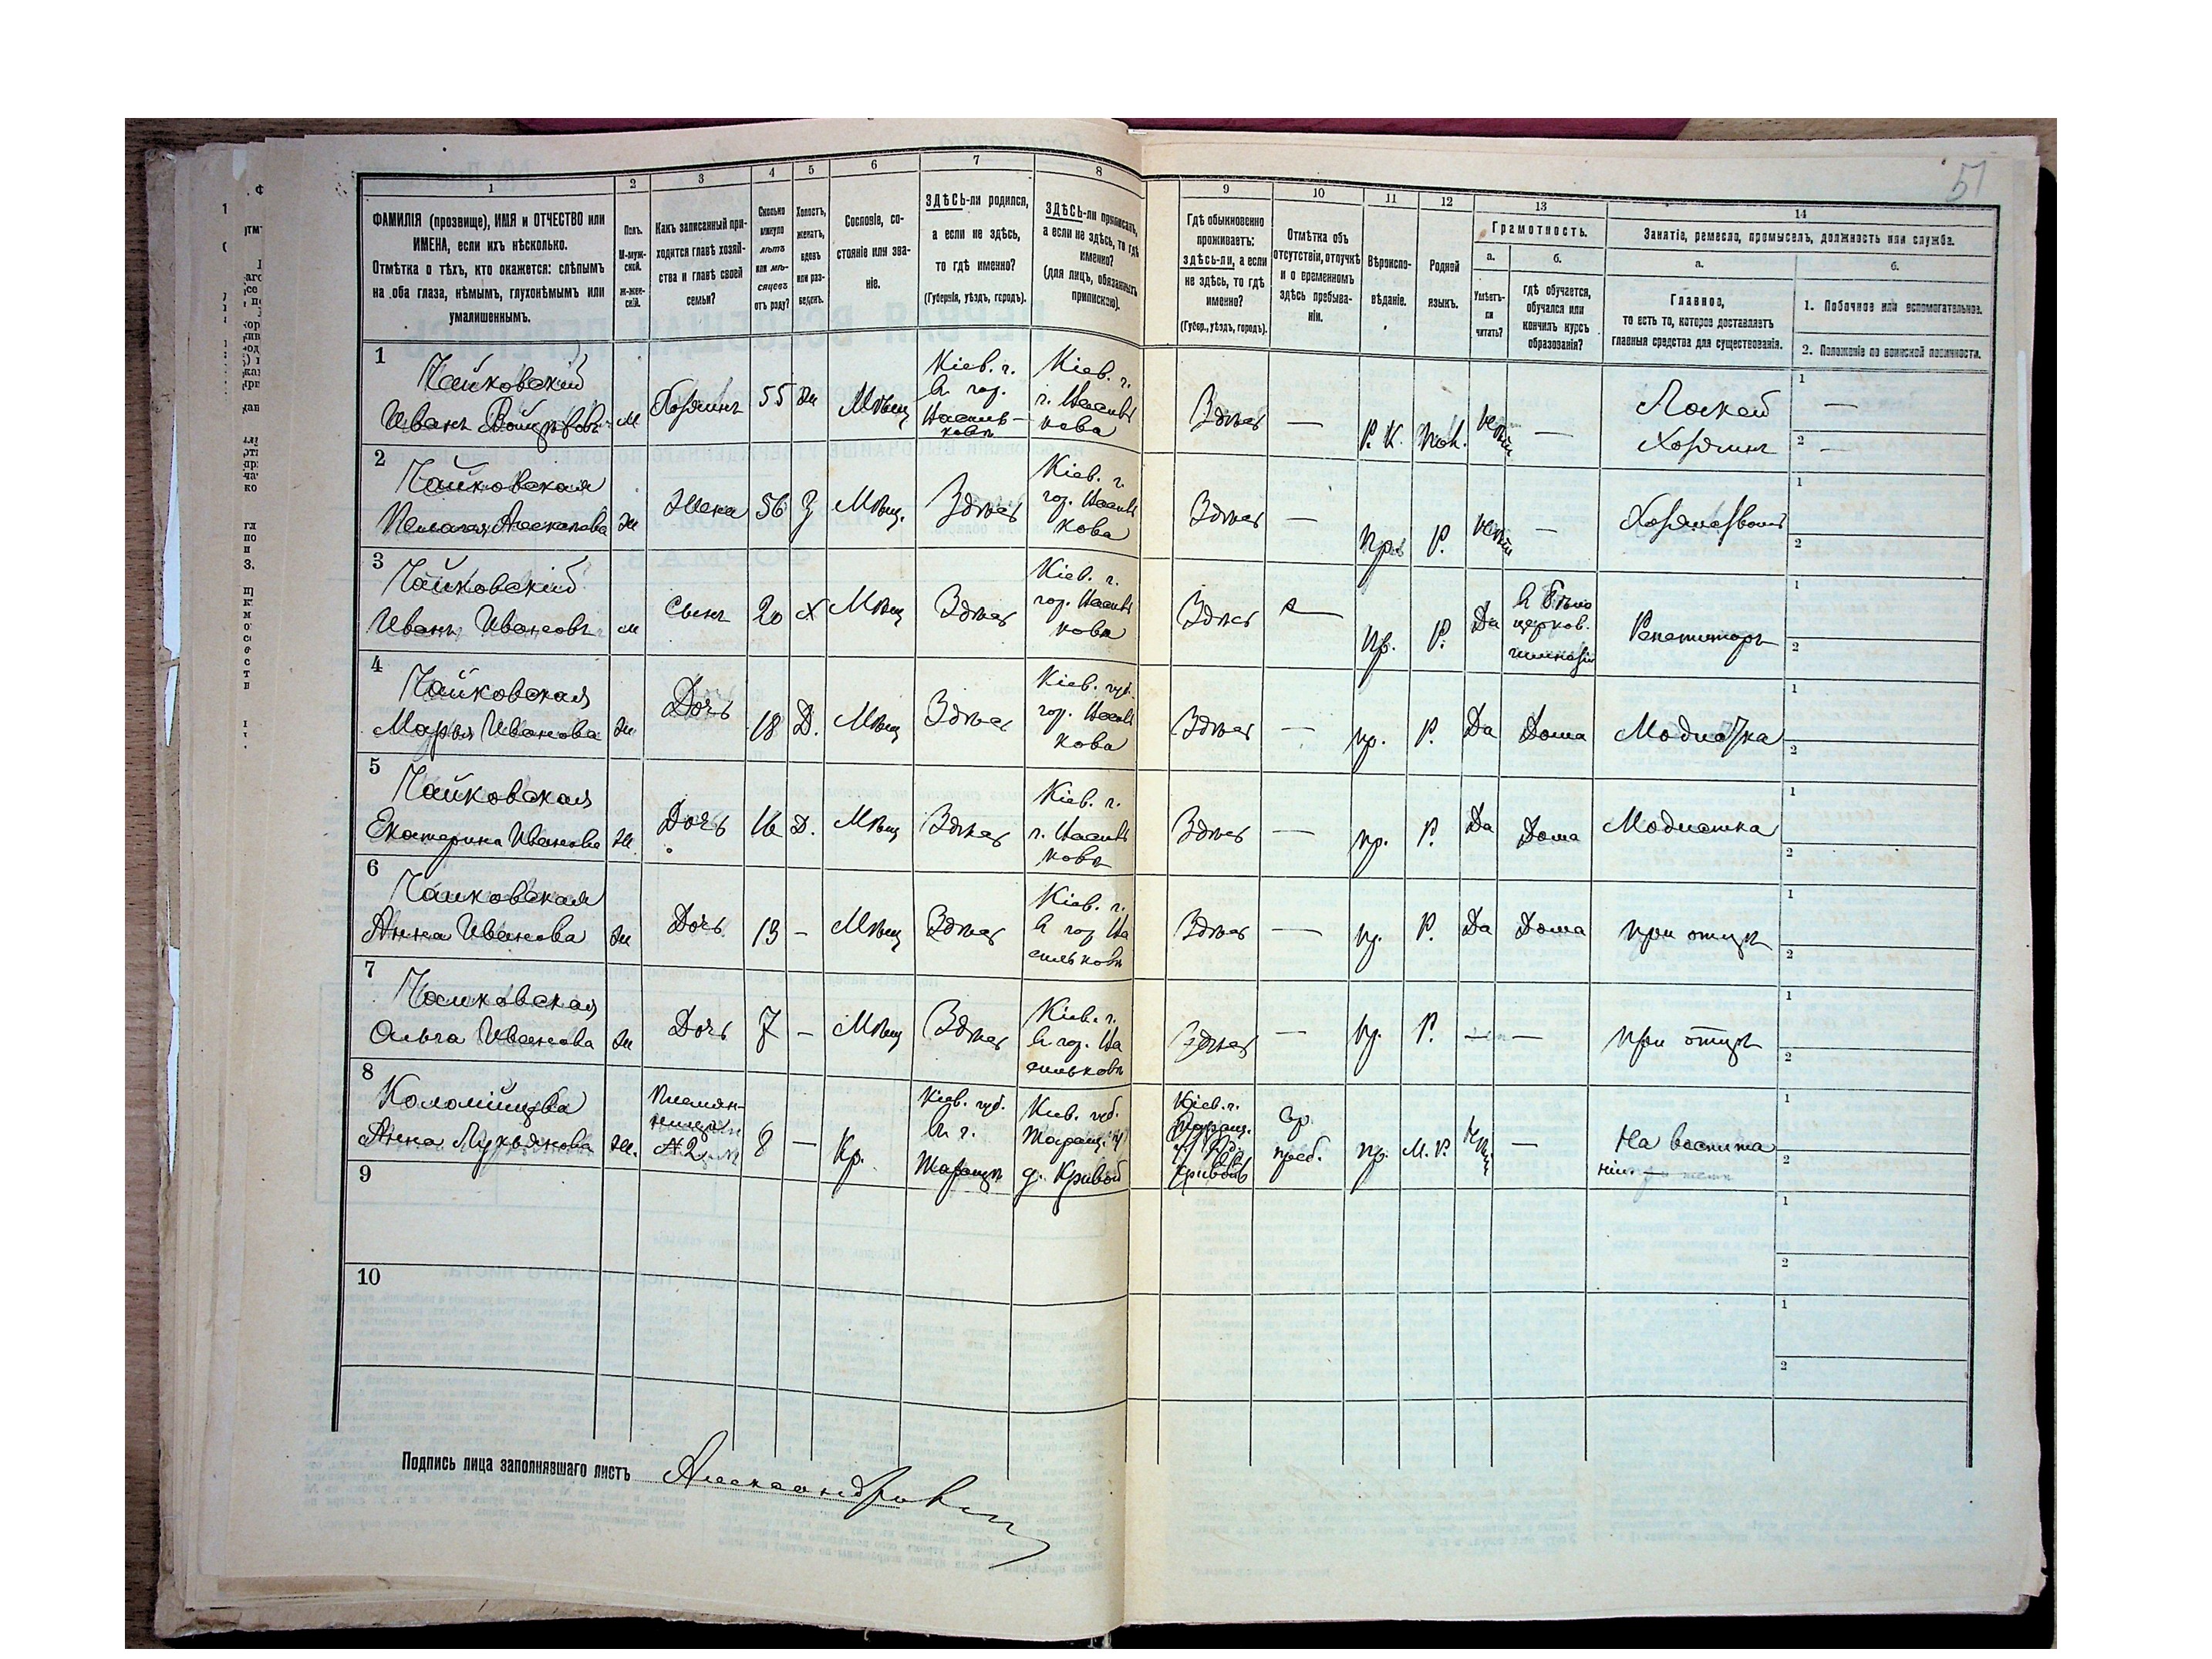 51
1 2 3 4 5 6 7 8 9 10 11 12 13 14
ФАМИЛІЯ (прозвище), ИМЯ и ОТЧЕСТВО или
ИМЕНА, если ихъ нѣсколько.
Отмѣтка о тѣхъ, кто окажется: слѣпымъ
на оба глаза, нѣмымъ, глухонѣмымъ или
умалишеннымъ.
Полъ.
М-муж-
ской.
Ж-жен-
скій.
Какъ записанный при-
ходится главѣ хозяй-
ства и главѣ своей
семьи?
Сколько
минуло
лѣтъ
или мѣ-
сяцевъ
отъ роду?
Холостъ,
женатъ,
вдовъ
или раз-
веденъ.
Сословіе, со-
стояніе или зва-
ніе.
ЗДѢСЬ-ли родился,
а если не здѣсь,
то гдѣ именно?
(Губернія, уѣздъ, городъ).
ЗДѢСЬ-ли приписанъ,
а если не здѣсь, то гдѣ
именно?
(для лицъ, обязанныхъ
припискою).
Гдѣ обыкновенно
проживаетъ:
здѣсь-ли, а если
не здѣсь, то гдѣ
именно?
(Губер., уѣздъ, городъ).
Отмѣтка объ
отсутствіи, отлучкѣ
и о временномъ
здѣсь пребыва-
ніи.
Вѣроиспо-
вѣданіе.
Родной
языкъ.
Грамотность.
а.
Умѣетъ-
ли
читать?
б.
гдѣ обучается,
обучался или
кончилъ курсъ
образованія?
Занятіе, ремесло, промыселъ, должность или служба.
а.
Главное,
то есть то, которое доставляетъ
главныя средства для существованія.
б.
1. Побочное или вспомогательное.
2. Положеніе по воинской повинности.
1
Чайковскій
Иванъ
м
Хозяинъ
55
ж
Мѣщ
Кіев. г.
в. гор.
Василь-
ковѣ
Кіев. г.
г. Василь
кова
Здѣсь
—
Р. К.
Пол.
—
Лакей
Хозяинъ
1
—
2
—
2
Чайковская
Пелагея
ж
Жена
56
З
Мѣщ.
Здѣсь
Кіев. г.
гор. Василь
кова
Здѣсь
—
Пр.
Р.
—
1
2
3
Чайковскій
Иванъ Ивановъ
м
Сынъ
20
х
Мѣщ
Здѣсь
Кіев. г.
гор. Василь
кова
Здѣсь
Пр.
Р.
Да
в Бѣло
церков.
гимназіи
Репетиторъ
1
2
4
Чайковская
Марья Иванова
ж
Дочь
18
Д.
Мѣщ
Здѣсь
Кіев. губ.
гор. Василь
кова
Здѣсь
—
пр.
Р.
Да
Дома
Модистка
1
2
5
Чайковская
Екатерина Иванова
ж
Дочь
16
Д.
Мѣщ
Здѣсь
Кіев. г.
г. Василь
ковѣ
Здѣсь
—
пр.
Р.
Да
Дома
Модистка
1
2
6
Чайковская
Анна Иванова
ж
Дочь
13
—
Мѣщ
Здѣсь
Кіев. г.
в гор Ва
сильковѣ
Здѣсь
—
пр.
Р.
Да
Дома
при отцѣ
1
2
7
Чайковская
Ольга Иванова
ж
Дочь
7
—
Мѣщ
Здѣсь
Кіев. г.
в гор. Ва
сильковѣ
Здѣсь
—
пр.
Р.
—
—
при отцѣ
1
2
8
Анна Лукьянова
ж.
Племян-
ница
№ 2
8
—
Кр.
Кіев. губ.
в г.
Таращѣ
Кіев. губ.
Таращ. у
д. Кривой
Кіев. г.
Таращ.
Вр.
преб.
пр.
М. Р.
—
На воспита
ніи
1
2
9
1
2
10
1
2
Подпись лица заполнявшаго листъ